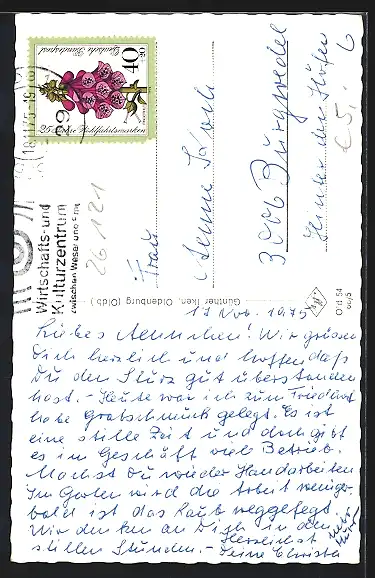 Deutsche Bundespost
40+20
25 Jahre Wohlfahrtsmarken
18.11.75-19
29
Wirtschafts- und
Kulturzentrum
zwischen Weser und Ems
26121
Frau
Aenne
3006 Burgwedel
Hinter den Höfen
6
€5,-
Günther Iken, Oldenburg (Oldb.)
17 Nov. 1975
Liebes Aennchen! Wir grüssen
Dich herzlich und hoffen daß
Du den Sturz gut überstanden
hast. - Heute war ich zum Friedhof
habe Grabschmuck gelegt. Es ist
eine stille Zeit und doch gibt
es im Geschäft viel Betrieb.
Machst Du wieder Handarbeiten
Im Garten wird die Arbeit weniger
bald ist das Laub weggefegt.
Wir denken an Dich in den
stillen Stunden. - Herzlichst
Deine Christa